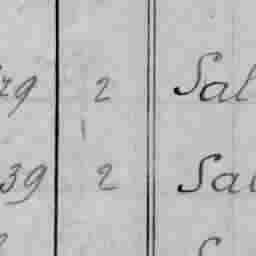 79 2 Sal
39 2 Sal